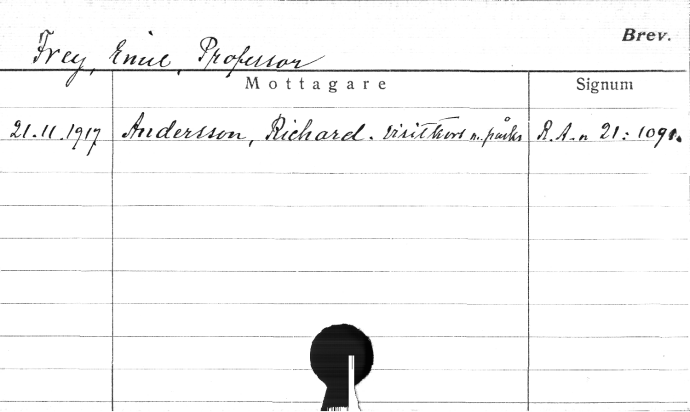 Brev.
Frey, Emil, Professor
Mottagare Signum
21.11.1917 Andersson, Richard. Visitkort m. påskr. R.A.n 21: 109